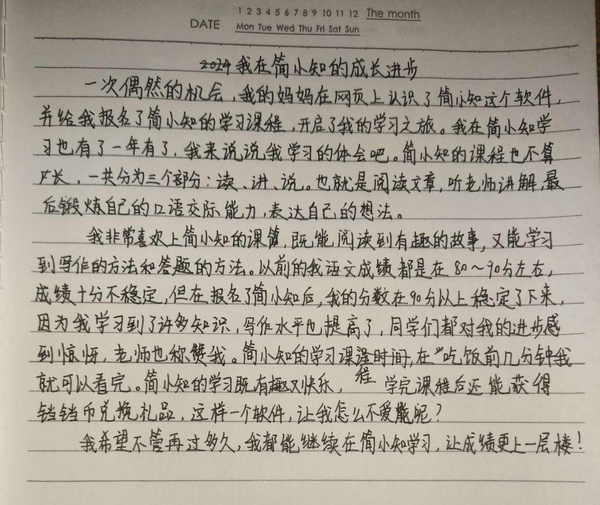 1 2 3 4 5 6 7 8 9 10 11 12 The month
DATE Mon Tue Wed Thu Fri Sat Sun
2024我在简小知的成长进步
一次偶然的机会，我的妈妈在网页上认识了简小知这个软件，
并给我报名了简小知的学习课程，开启了我的学习之旅。我在简小知学
习也有了一年有了，我来说说我学习的体会吧。简小知的课程也不算
太长，一共分为三个部分：读、讲、说。也就是阅读文章，听老师讲解，最
后锻炼自己的口语交际能力，表达自己的想法。
我非常喜欢上简小知的课，既能阅读到有趣的故事，又能学习
到写作的方法和答题的方法。以前的我语文成绩都是在80～90分左右，
成绩十分不稳定，但在报名了简小知后，我的分数在90分以上稳定了下来，
因为我学习到了许多知识，写作水平也提高了，同学们都对我的进步感
到惊讶，老师也称赞我。简小知的学习课时间，在吃饭前几分钟我
就可以看完。简小知的学习既有趣又快乐，学完课程后还能获得
铛铛币兑换礼品，这样一个软件，让我怎么不爱呢？
我希望不管再过多久，我都能继续在简小知学习，让成绩更上一层楼！